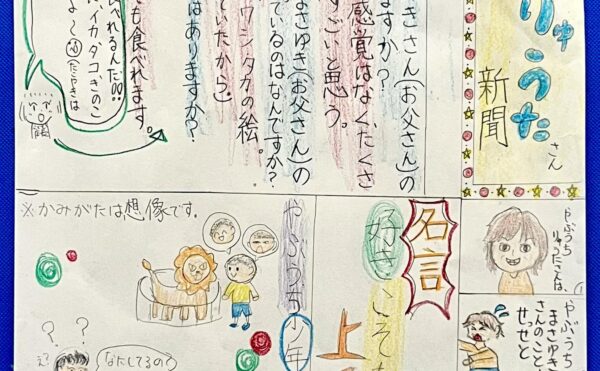 りゅうた
さん
新聞
きさん(お父さん)の
ますか?
感覚はなく、たくさ
すごいと思う。
まさゆき(お父さん)の
ているのはなんですか?
の絵。
ていたから。
はありますか?
も食べれます。
べれるんだ!!
イカタコきのこ
やぶうち
りゅうたさんは、
やぶうち
まさゆき
さんのこと、
せっせと
名言
好きこそ
上
やぶうち少年
※かみがたは想像です。
? ?
なにしてるの?